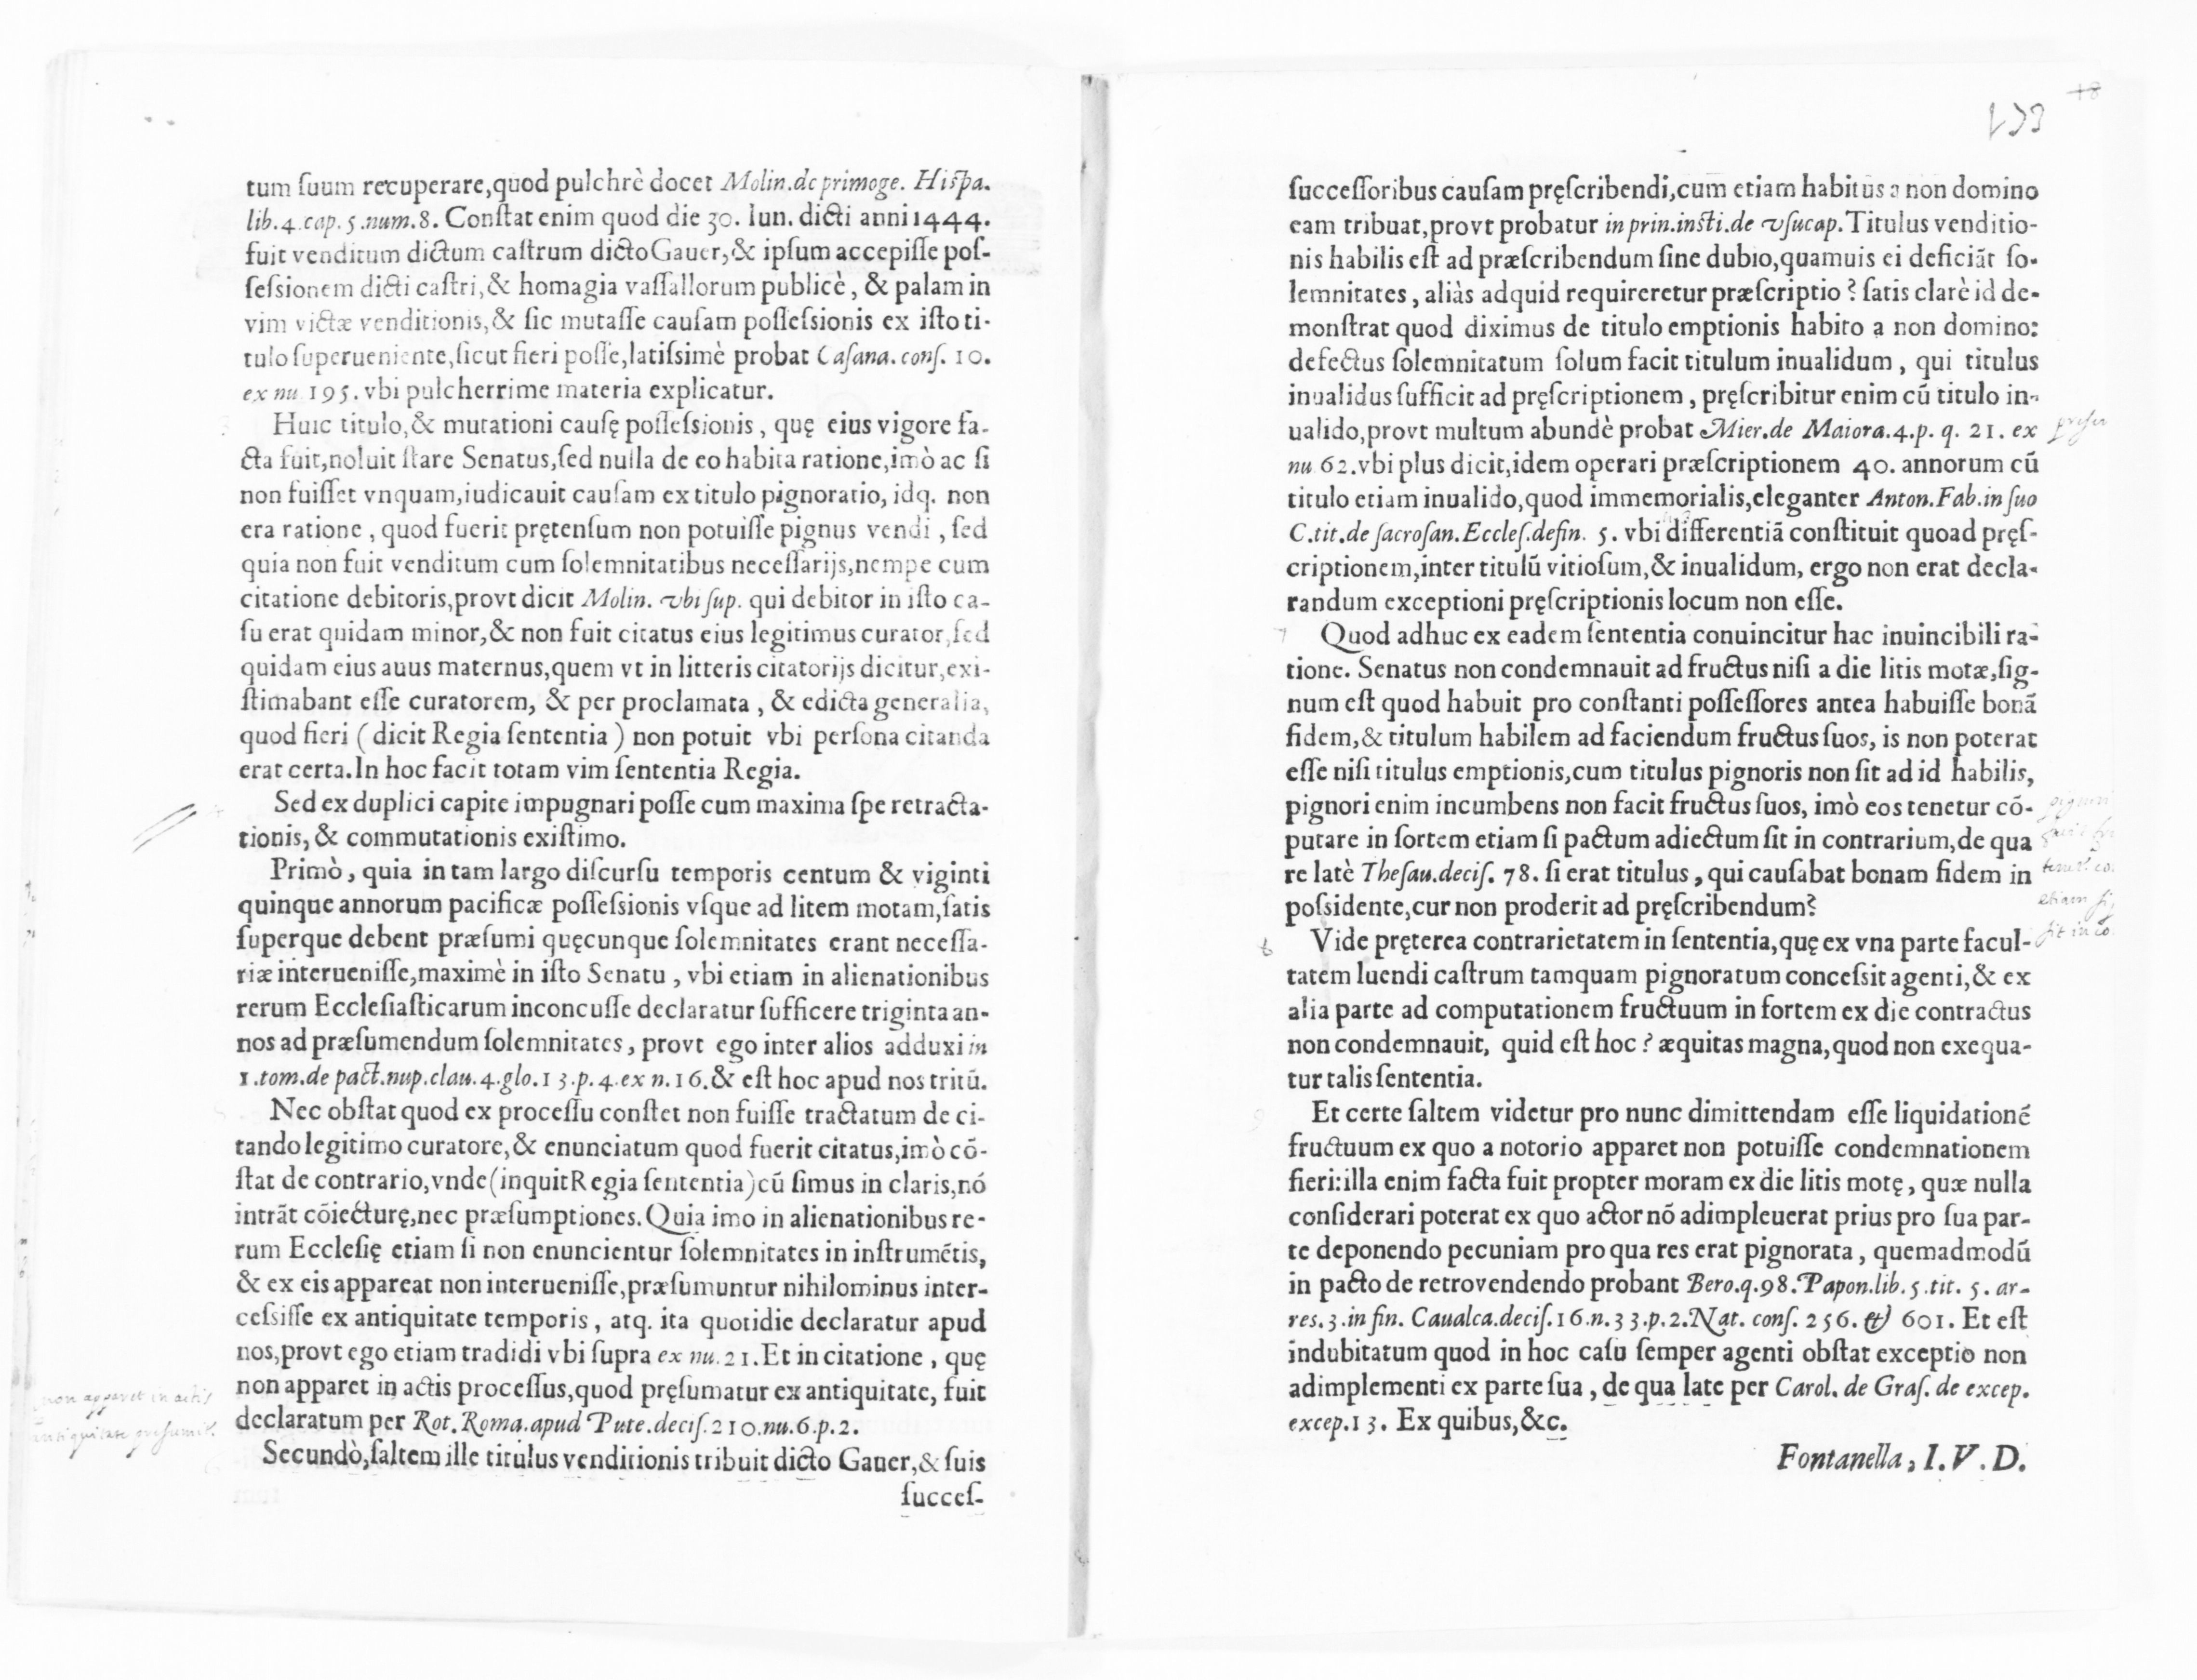 tum ſuum recuperare,quod pulchrè docet Molin.de primoge. Hiſpa.
lib.4.cap.5.num.8. Conſtat enim quod die 30. Iun. dicti anni 1444.
fuit venditum dictum caſtrum dicto Gauer,& ipſum accepiſſe poſ-
ſeſsionem dicti caſtri,& homagia vaſſallorum publicè, & palam in
vim victæ venditionis,& ſic mutaſſe cauſam poſſeſsionis ex iſto ti-
tulo ſuperueniente,ſicut fieri poſſe,latiſsimè probat Caſana. conſ. 10.
ex nu 195. vbi pulcherrime materia explicatur.
Huic titulo,& mutationi cauſę poſſeſsionis, quę eius vigore fa-
cta fuit,noluit ſtare Senatus,ſed nulla de eo habita ratione,imò ac ſi
non fuiſſet vnquam,iudicauit cauſam ex titulo pignoratio, idq. non
era ratione, quod fuerit prętenſum non potuiſſe pignus vendi, ſed
quia non fuit venditum cum ſolemnitatibus neceſſarijs,nempe cum
citatione debitoris,provt dicit Molin. vbi ſup. qui debitor in iſto ca-
ſu erat quidam minor,& non fuit citatus eius legitimus curator,ſed
quidam eius auus maternus,quem vt in litteris citatorijs dicitur,exi-
ſtimabant eſſe curatorem, & per proclamata, & edicta generalia,
quod fieri (dicit Regia ſententia) non potuit vbi perſona citanda
erat certa.In hoc facit totam vim ſententia Regia.
Sed ex duplici capite impugnari poſſe cum maxima ſpe retracta-
tionis, & commutationis exiſtimo.
Primò, quia in tam largo diſcurſu temporis centum & viginti
quinque annorum pacificæ poſſeſsionis vſque ad litem motam,ſatis
ſuperque debent præſumi quęcunque ſolemnitates erant neceſſa-
riæ interueniſſe,maximè in iſto Senatu, vbi etiam in alienationibus
rerum Eccleſiaſticarum inconcuſſe declaratur ſufficere triginta an-
nos ad præſumendum ſolemnitates, provt ego inter alios adduxi in
1.tom.de pact.nup.clau.4.glo.13.p.4.ex n.16.& eſt hoc apud nos tritū.
Nec obſtat quod ex proceſſu conſtet non fuiſſe tractatum de ci-
tando legitimo curatore,& enunciatum quod fuerit citatus,imò cō-
ſtat de contrario,vnde(inquit Regia ſententia)cū ſimus in claris,nō
intrāt cōiecturę,nec præſumptiones.Quia imo in alienationibus re-
rum Eccleſię etiam ſi non enuncientur ſolemnitates in inſtrumētis,
& ex eis appareat non interueniſſe,præſumuntur nihilominus inter-
ceſsiſſe ex antiquitate temporis, atq. ita quotidie declaratur apud
nos,provt ego etiam tradidi vbi ſupra ex nu.21.Et in citatione, quę
non apparet in actis proceſſus,quod pręſumatur ex antiquitate, fuit
non apparet in actis
declaratum per Rot.Roma.apud Pute.deciſ.210.nu.6.p.2.
antiquitate presumit.
Secundò,ſaltem ille titulus venditionis tribuit dicto Gauer,& ſuis
ſucceſ-
ſucceſſoribus cauſam pręſcribendi,cum etiam habitus a non domino
eam tribuat,provt probatur in prin.inſti.de vſucap.Titulus venditio-
nis habilis eſt ad præſcribendum ſine dubio,quamuis ei deficiāt ſo-
lemnitates, aliàs ad quid requireretur præſcriptio? ſatis clarè id de-
monſtrat quod diximus de titulo emptionis habito a non domino:
defectus ſolemnitatum ſolum facit titulum inualidum, qui titulus
inualidus ſufficit ad pręſcriptionem, pręſcribitur enim cū titulo in-
ualido,provt multum abundè probat Mier.de Maiora.4.p. q. 21. ex
nu 62.vbi plus dicit,idem operari præſcriptionem 40. annorum cū
titulo etiam inualido,quod immemorialis,eleganter Anton.Fab.in ſuo
C.tit.de ſacroſan.Eccleſ.defin. 5. vbi differentiā conſtituit quoad pręſ-
criptionem,inter titulū vitioſum,& inualidum, ergo non erat decla-
randum exceptioni pręſcriptionis locum non eſſe.
7 Quod adhuc ex eadem ſententia conuincitur hac inuincibili ra-
tione. Senatus non condemnauit ad fructus niſi a die litis motæ,ſig-
num eſt quod habuit pro conſtanti poſſeſſores antea habuiſſe bonā
fidem,& titulum habilem ad faciendum fructus ſuos, is non poterat
eſſe niſi titulus emptionis,cum titulus pignoris non ſit ad id habilis,
pignori enim incumbens non facit fructus ſuos, imò eos tenetur cō-
putare in ſortem etiam ſi pactum adiectum ſit in contrarium,de qua
re latè Theſau.deciſ. 78. ſi erat titulus, qui cauſabat bonam fidem in
poſsidente,cur non proderit ad pręſcribendum?
Vide pręterea contrarietatem in ſententia,quę ex vna parte facul-
tatem luendi caſtrum tamquam pignoratum conceſsit agenti,& ex
alia parte ad computationem fructuum in ſortem ex die contractus
non condemnauit, quid eſt hoc? æquitas magna,quod non exequa-
tur talis ſententia.
Et certe ſaltem videtur pro nunc dimittendam eſſe liquidationē
fructuum ex quo a notorio apparet non potuiſſe condemnationem
fieri:illa enim facta fuit propter moram ex die litis motę, quæ nulla
conſiderari poterat ex quo actor nō adimpleuerat prius pro ſua par-
te deponendo pecuniam pro qua res erat pignorata, quemadmodū
in pacto de retrovendendo probant Bero.q.98.Papon.lib.5.tit. 5. ar-
res.3.in fin. Caualca.deciſ.16.n.33.p.2.Nat. conſ. 256. & 601. Et eſt
indubitatum quod in hoc caſu ſemper agenti obſtat exceptio non
adimplementi ex parte ſua, de qua late per Carol. de Graſ. de excep.
excep.13. Ex quibus,&c.
Fontanella, I.V.D.